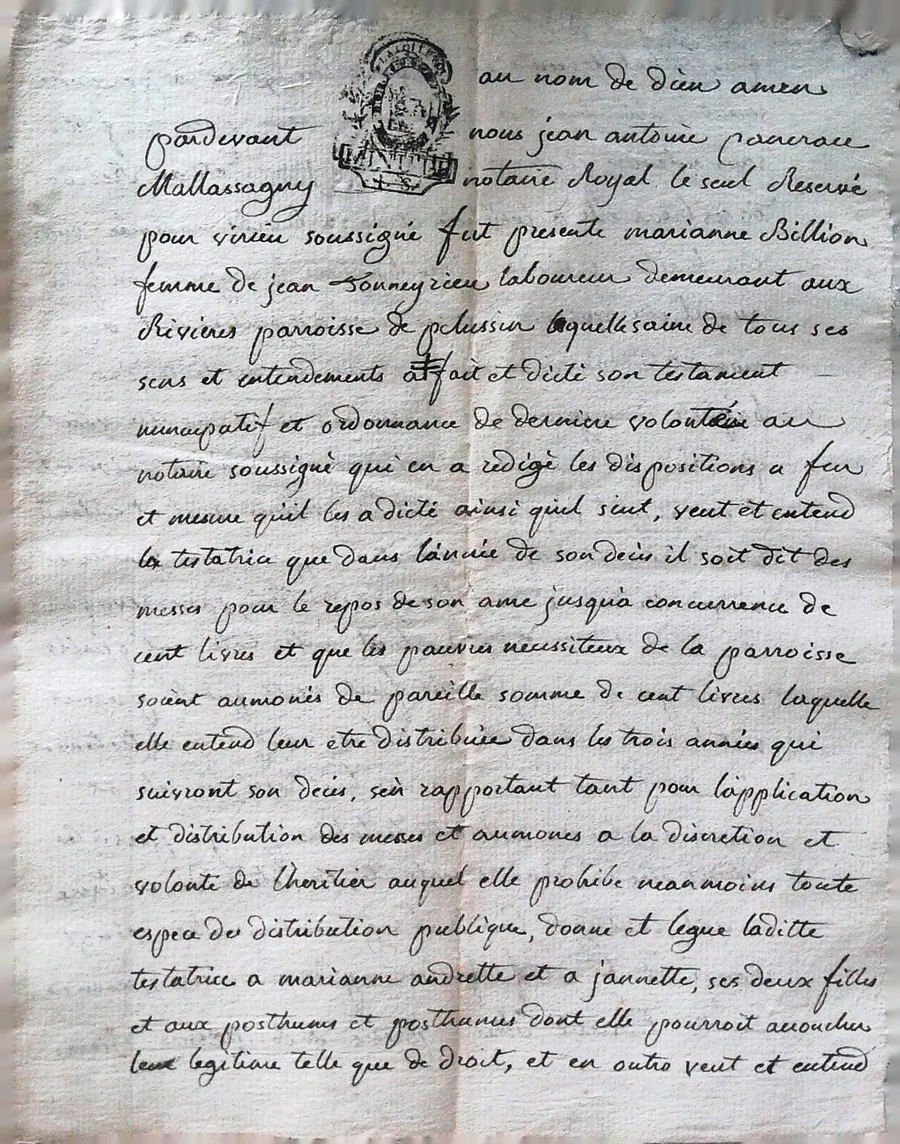 au nom de dieu amen
pardevant nous jean antoine pancrace
Mallassagny notaire Royal le seul Reservé
pour virieu soussigné fut presente marianne Billion
femme de jean Donneyrieu laboureur demeurant aux
Rivieres parroisse de pelussin laquelle saine de tous ses
sens et entendements a fait et dicté son testament
nuncupatif et ordonnance de derniere volonté au
notaire soussigné qui en a redigé les dispositions a fur
et mesure qu'il les a dicté ainsi quil suit, veut et entend
la testatrice que dans l'année de son deces il soit dit des
messes pour le repos de son ame jusqu'a concurrence de
cent livres et que les pauvres necessiteux de la parroisse
soient aumonés de pareille somme de cent livres laquelle
elle entend leur etre distribuée dans les trois années qui
suivront son deces, s'en rapportant tant pour l'application
et distribution des messes et aumones a la discretion et
volonte de l'heritier auquel elle prohibe neanmoins toute
espece de distribution publique, donne et legue laditte
testatrice a marianne andrette et a jannette, ses deux filles
et aux posthumes et posthumes dont elle pourroit accoucher
leur legitime telle que de droit, et en outre veut et entend